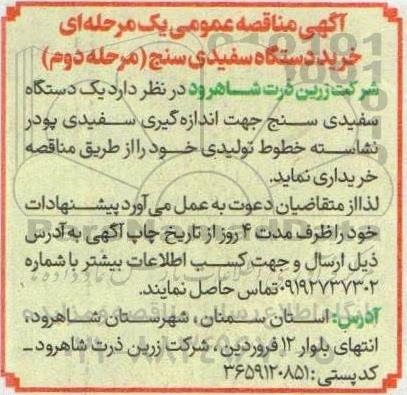 آگهی مناقصه عمومی یک مرحله‌ای
خرید دستگاه سفیدی سنج (مرحله دوم)
شرکت زرین ذرت شاهرود در نظر دارد یک دستگاه
سفیدی سنج جهت اندازه گیری سفیدی پودر
نشاسته خطوط تولیدی خود را از طریق مناقصه
خریداری نماید.
لذا از متقاضیان دعوت به عمل می‌آورد پیشنهادات
خود را ظرف مدت ۴ روز از تاریخ چاپ آگهی به آدرس
ذیل ارسال و جهت کسب اطلاعات بیشتر با شماره
۰۹۱۹۲۷۳۷۳۰۲ تماس حاصل نمایند.
آدرس: استان سمنان، شهرستان شاهرود،
انتهای بلوار ۱۲ فروردین، شرکت زرین ذرت شاهرود -
کدپستی: ۳۶۵۹۱۲۰۸۵۱